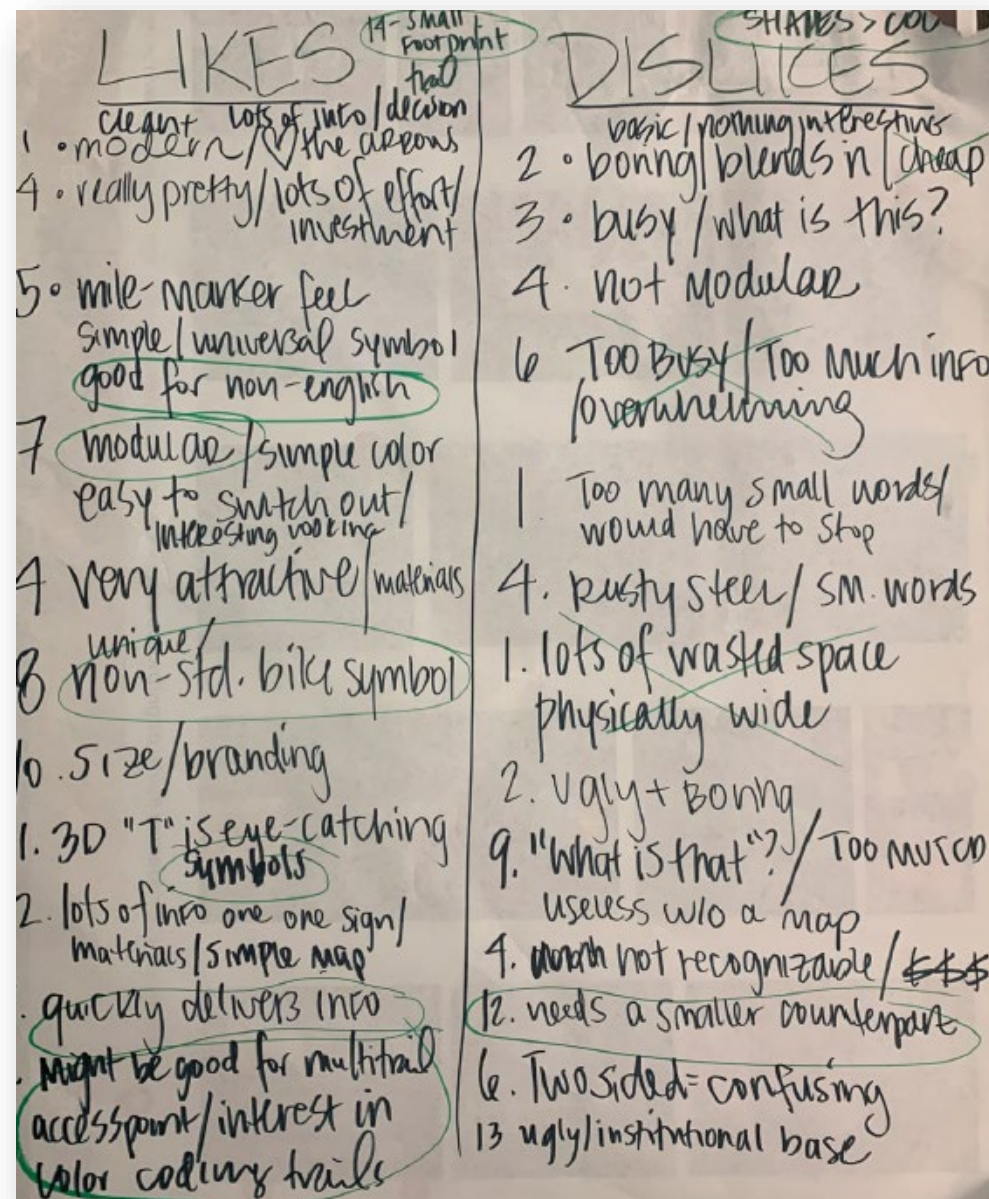 LIKES
14- small
footprint
trail
clean+ lots of info/decision
1 • modern/♡ the arrows
4 • really pretty/lots of effort/
investment
5 • mile-marker feel
simple/universal symbol
good for non-english
7 modular/simple color
easy to switch out/
interesting looking
4 very attractive/materials
unique/
8 non-std. bike symbol
10. size/branding
1. 3D "T" is eye-catching
symbols
2. lots of info one one sign/
materials/simple map
. quickly delivers info
. might be good for multitrail
accesspoint/interest in
color coding trails
SHAPES > COL
DISLIKES
basic/nothing interesting
2 • boring/blends in/cheap
3 • busy/what is this?
4. not modular
6 Too Busy/Too Much info
/overwhelming
1 Too many small words/
would have to stop
4. rusty steel/sm. words
1. lots of wasted space
physically wide
2. ugly + Boring
9. "What is that"?/TOO MUTCD
useless w/o a map
4. not recognizable/$$$
12. needs a smaller counterpart
6. Two sided = confusing
13 ugly/institutional base